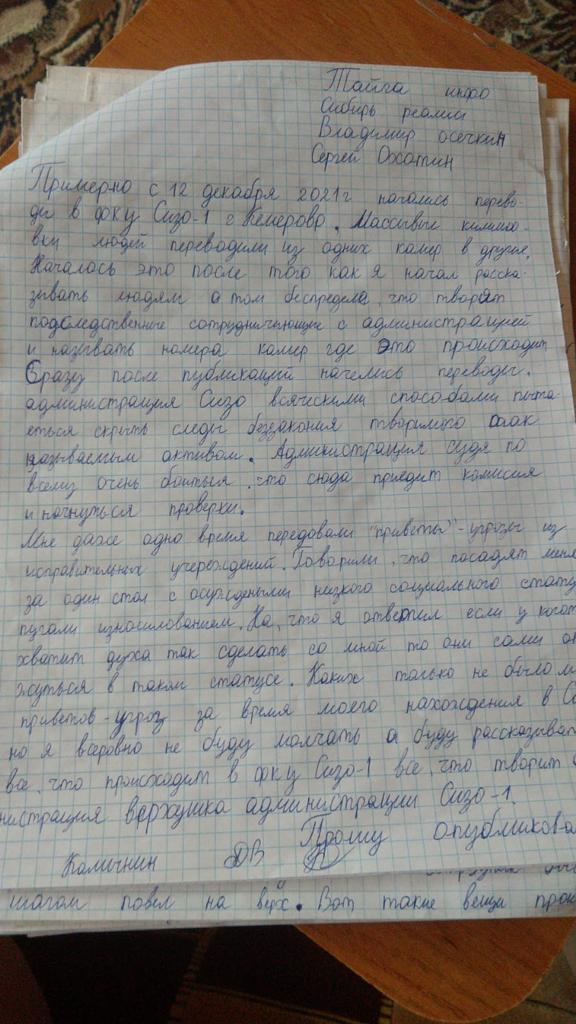 Тайга инфо
Сибирь реалии
Владимир осечкин
Сергей Охотин
Примерно с 12 декабря 2021г начались перево-
ды в фку Сизо-1 г Кемерово. Массывые
вом людей переводили из одних камер в другие.
Началось это после того как я начал расска-
зывать людям о том беспределе, что творят
подследственные сотрудничиющие с администрацией
и называть номера камер где это происходит
Сразу после публикаций начелись переводы.
администрация Сизо всяческими способами пыта-
еться скрыть следы беззакония творимого так
называемым активом. Администрация судя по
всему очень боиться, что сюда приедит комисия
и начнуться проверки.
Мне даже одно время передовали "приветы"-угрозы из
исправительных учереждений. Говорили, что посадят меня
за один стол с осуждеными низкого социального стату
пугали износилованием. На, что я ответил если у когот
хватит духа так сделать со мной то они сами ок
жуться в таком статусе. Каких только не было м
приветов-угроз за время моего нахождения в С
но я всеровно не буду молчать а буду рассказыват
все, что происходит в фку Сизо-1 все, что творит а
нистрация верхушка администрации Сизо-1.
Прошу опубликова
Камычнин ДВ
шагом повел на верх. Вот такие вещи прои